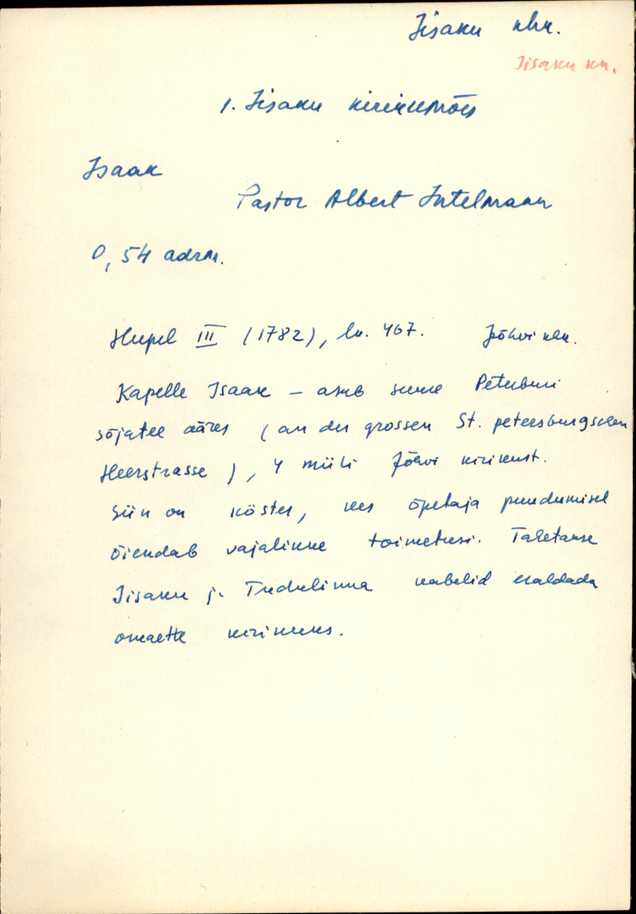 Iisaku khk.
Iisaku kn.
1. Iisaku kirikumõis
Isaak
Pastor Albert Intelmann
0,54 adrm.
Hupel III (1782), lk. 467. Jõhvi khk.
Kapelle Isaak – asub suure Peterburi
sõjatee ääres (an der grossen St. petersburgschen
Heerstrasse), 4 miili Jõhvi kirikust.
Siin on köster, kes õpetaja puudumisel
õiendab vajalikke toimetusi. Taletakse
Iisaku j. Tudulinna kabelid eraldada
omaette kirikuks.